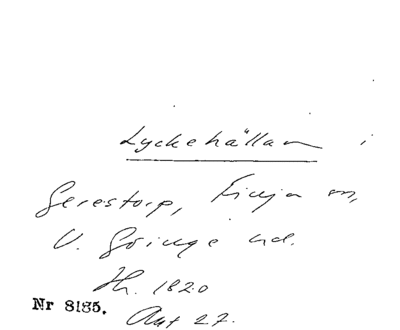 Lyckehällan i
Gerestorp, Finja sn,
V. Göinge hd.
Th. 1820
Nr 8185.
Akt 27.